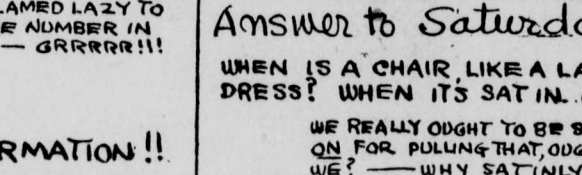 LAMED LAZY TO
E NUMBER IN
— GRRRRR!!!
RMATION!!
Answer to Saturd
WHEN IS A CHAIR LIKE A LA
DRESS? WHEN ITS SAT IN.
WE REALLY OUGHT TO BE S
ON FOR PULLING THAT, OUG
WE? — WHY SATINLY